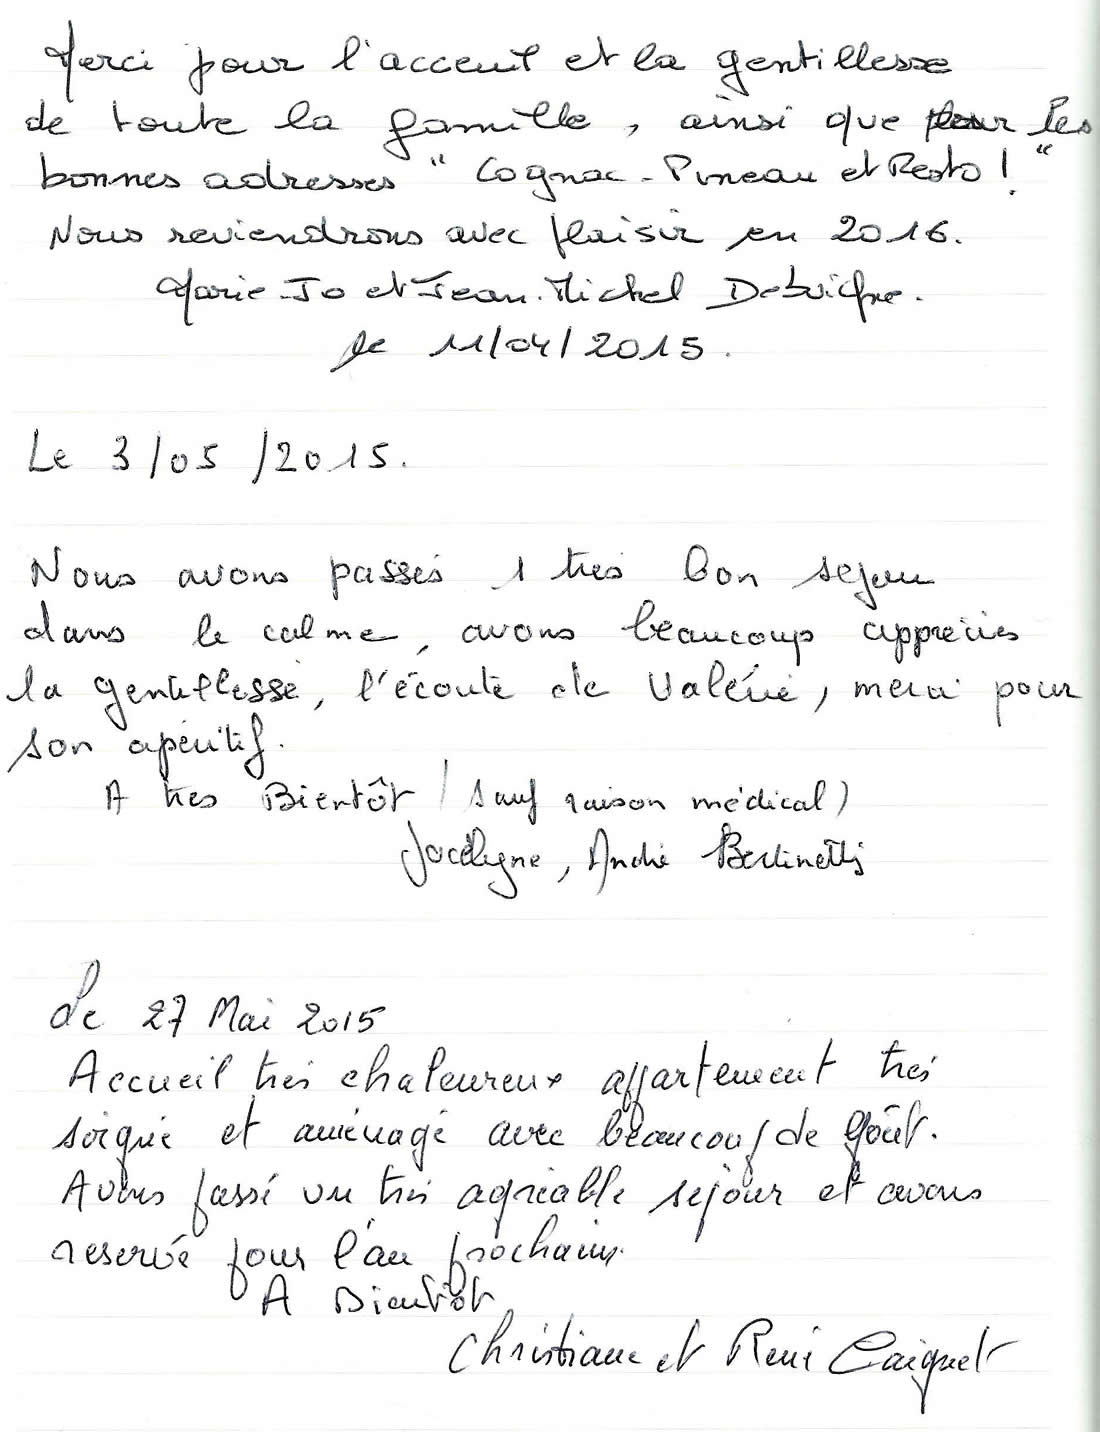 Merci pour l'acceuil et la gentillesse
de toute la famille, ainsi que pour les
bonnes adresses "Cognac - Pineau et Resto!"
Nous reviendrons avec plaisir en 2016.
Marie-Jo et Jean-Michel
le 11/04/2015.
Le 3/05/2015.
Nous avons passés 1 très bon sejour
dans le calme, avons beaucoup appréciés
la gentillesse, l'écoute de Valérie, merci pour
son apéritif.
A tres Bientôt (sauf raison médical)
Jocelyne, André
Le 27 Mai 2015
Accueil très chaleureux appartement très
soignée et aménagé avec beaucoup de Goût.
Avons passé un très agréable séjour et avons
reservé pour l'an prochain.
A Bientôt
Christiane et René